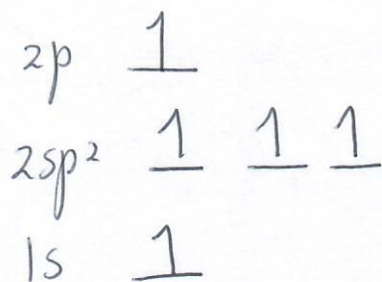 2p 1
2sp² 1 1 1
1s 1